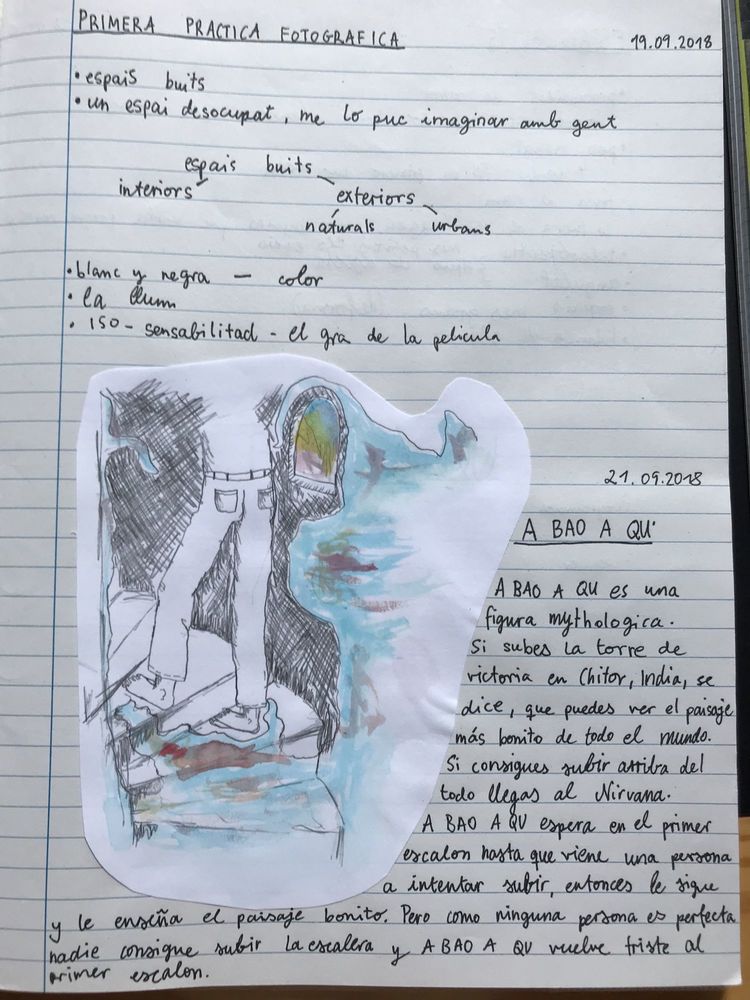 PRIMERA PRACTICA FOTOGRAFICA
19.09.2018
• espais buits
• un espai desocupat, me lo puc imaginar amb gent
espais buits
interiors
exteriors
naturals urbans
• blanc y negra — color
• la llum
• ISO - sensabilitad - el gra de la pelicula
21.09.2018
A BAO A QU
A BAO A QU es una
figura mythologica.
Si subes la torre de
victoria en Chitor, India, se
dice, que puedes ver el paisaje
más bonito de todo el mundo.
Si consigues subir arriba del
todo llegas al Nirvana.
A BAO A QU espera en el primer
escalon hasta que viene una persona
a intentar subir, entonces le sigue
y le enseña el paisaje bonito. Pero como ninguna persona es perfecta
nadie consigue subir la escallera y A BAO A QU vuelve triste al
primer escalon.